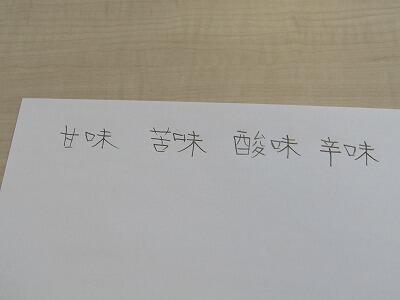 甘味 苦味 酸味 辛味